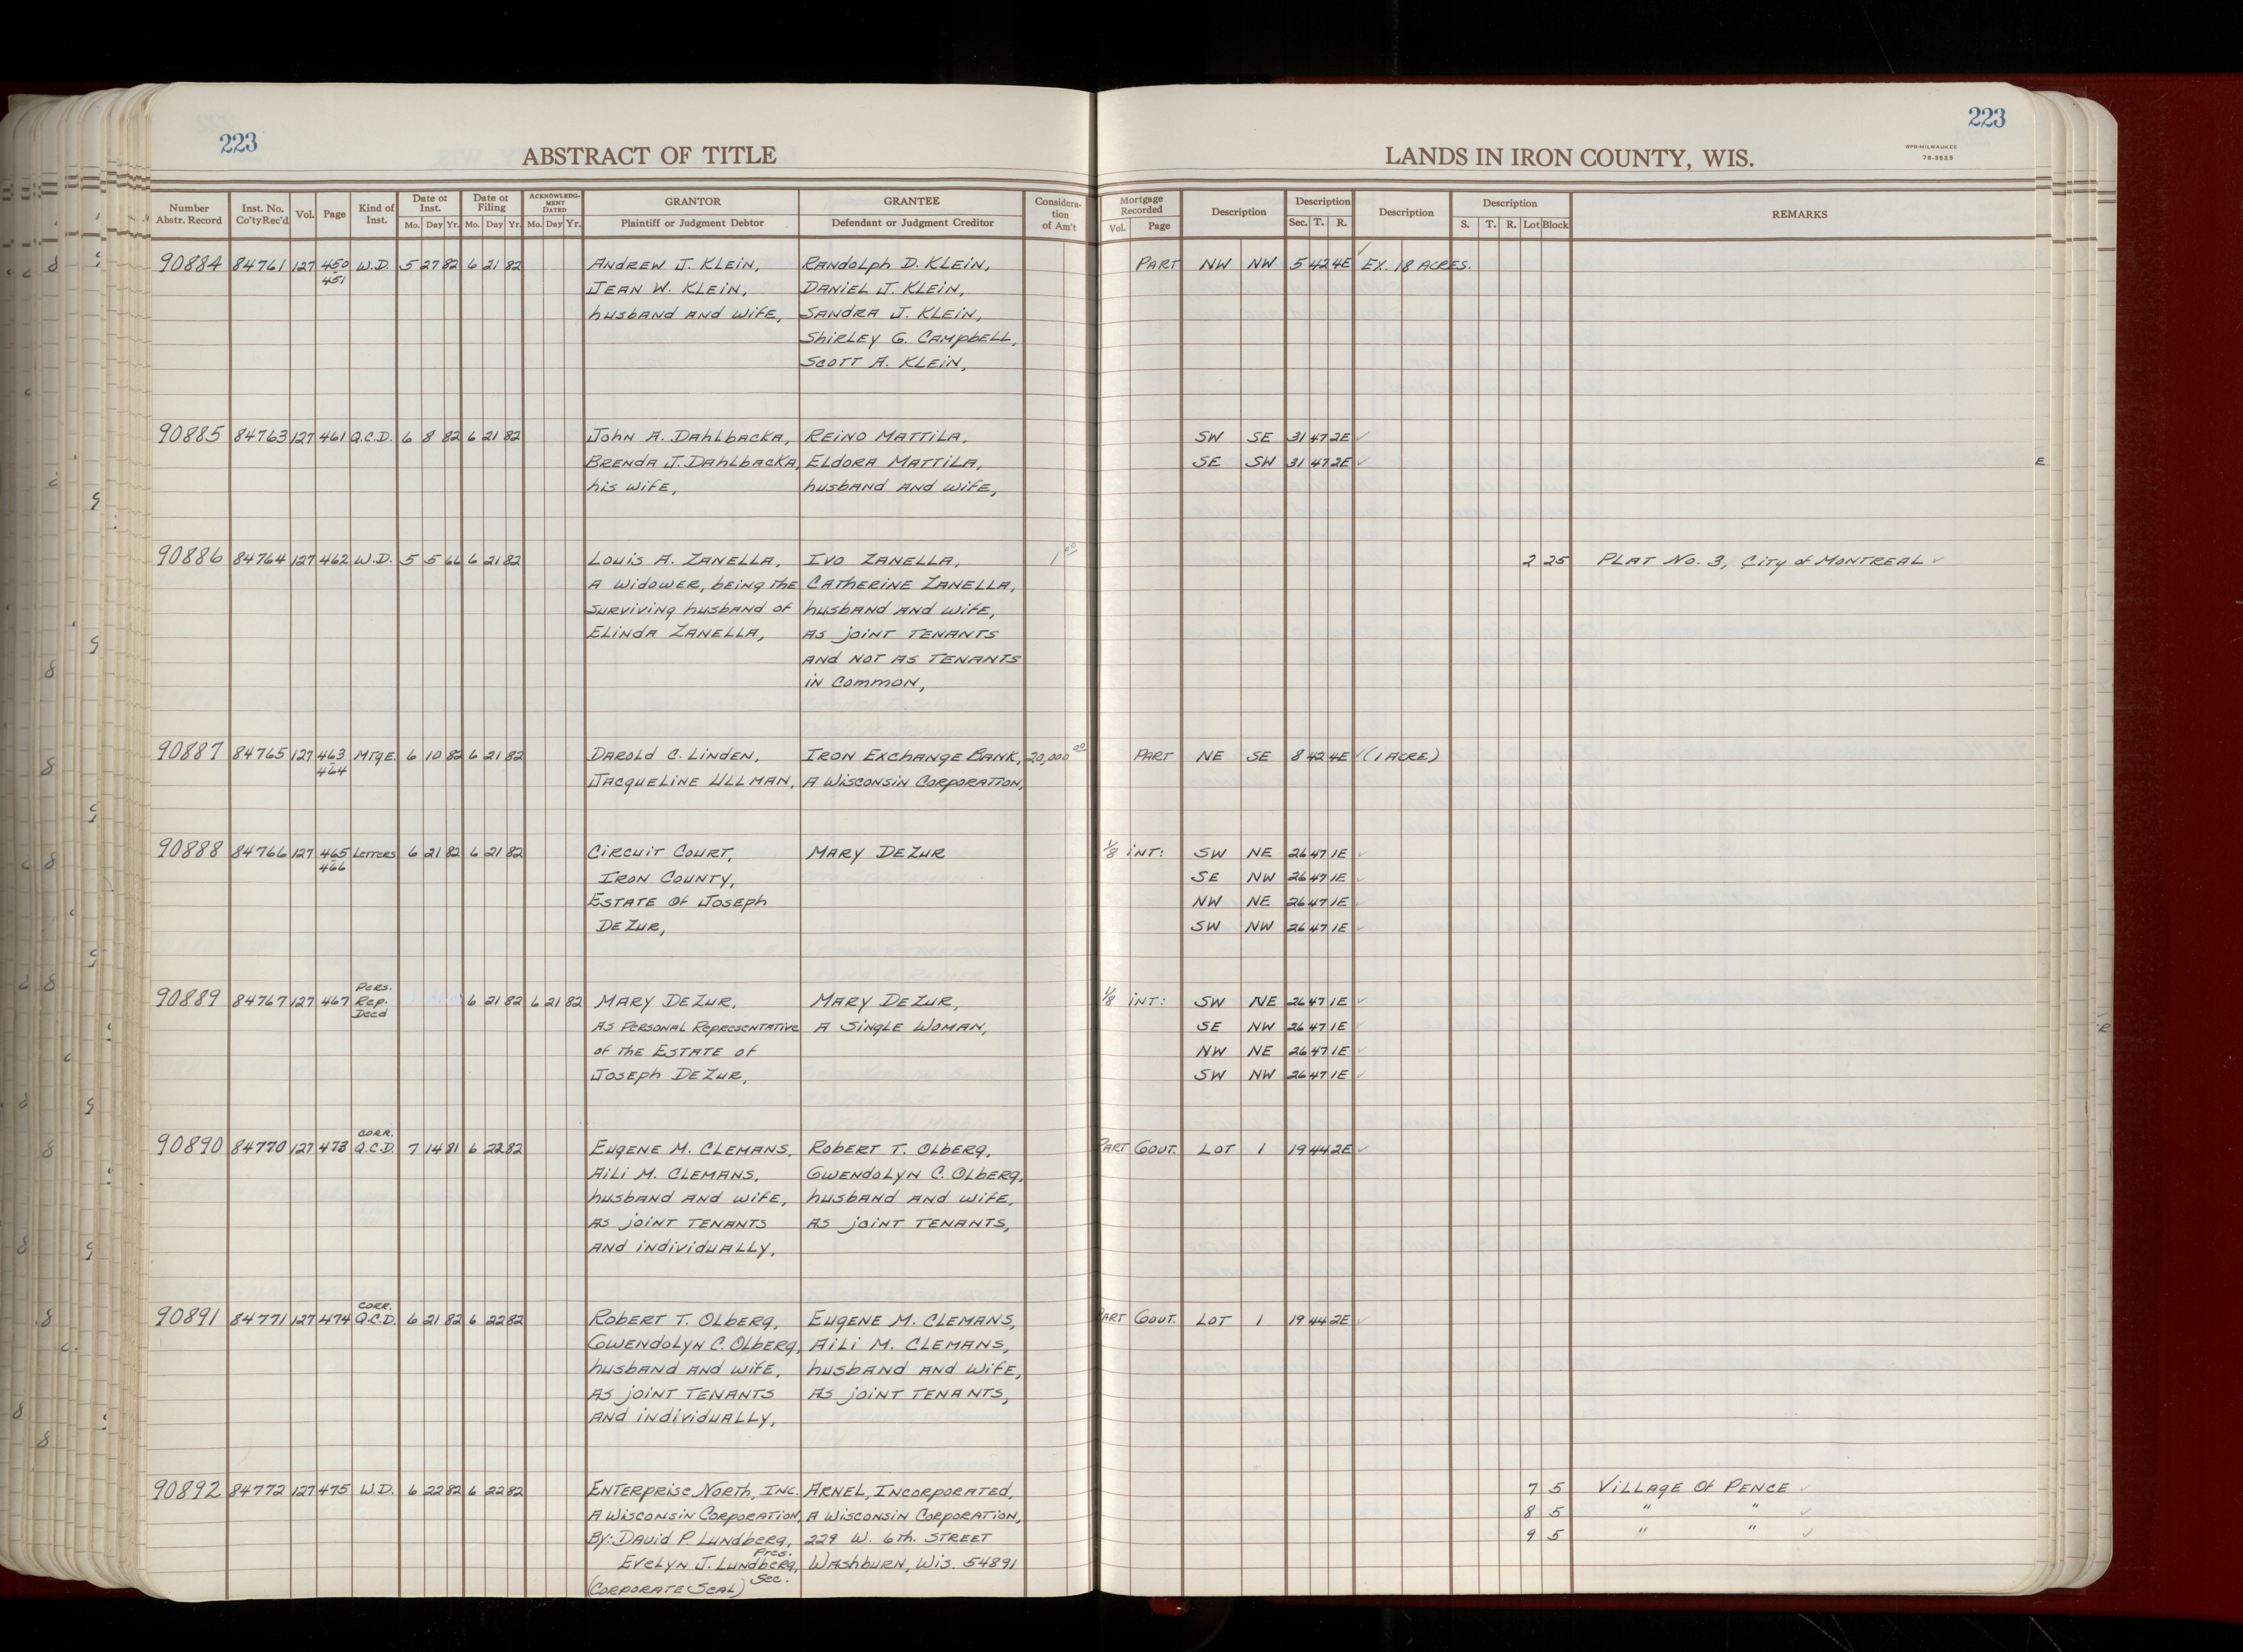 223
223
ABSTRACT OF TITLE
LANDS IN IRON COUNTY, WIS.
WPB-MILWAUKEE
78-3525
Number Abstr. Record | Inst. No. Co'ty Rec'd | Vol. | Page | Kind of Inst. | Date of Inst. Mo. Day Yr. | Date of Filing Mo. Day Yr. | ACKNOWLEDGMENT DATED Mo. Day Yr. | GRANTOR Plaintiff or Judgment Debtor | GRANTEE Defendant or Judgment Creditor | Consideration of Am't | Mortgage Recorded Vol. Page | Description | Description Sec. T. R. | Description | Description S. T. R. Lot Block | REMARKS
90884 84761 127 450 W.D. 5 27 82 6 21 82 Andrew J. Klein, Randolph D. Klein, Part NW NW 5 42 4E Ex. 18 Acres.
451 Jean W. Klein, Daniel J. Klein,
husband and wife, Sandra J. Klein,
Shirley G. Campbell,
Scott A. Klein,
90885 84763 127 461 Q.C.D. 6 8 82 6 21 82 John A. Dahlbacka, Reino Mattila, SW SE 31 47 2E
Brenda J. Dahlbacka, Eldora Mattila, SE SW 31 47 2E
his wife, husband and wife,
90886 84764 127 462 W.D. 5 5 66 6 21 82 Louis A. Zanella, Ivo Zanella, 1 00 2 25 Plat No. 3, City of Montreal
a widower, being the Catherine Zanella,
surviving husband of husband and wife,
Elinda Zanella, as joint tenants
and not as tenants
in common,
90887 84765 127 463 Mtge. 6 10 82 6 21 82 Darold C. Linden, Iron Exchange Bank, 20,000 00 Part NE SE 8 42 4E (1 Acre)
464 Jacqueline Ullman, a Wisconsin Corporation,
90888 84766 127 465 Letters 6 21 82 6 21 82 Circuit Court, Mary DeZur 1/8 int: SW NE 26 47 1E
466 Iron County, SE NW 26 47 1E
Estate of Joseph NW NE 26 47 1E
DeZur, SW NW 26 47 1E
90889 84767 127 467 Pers. Rep. Deed 6 21 82 6 21 82 Mary DeZur, Mary DeZur, 1/8 int: SW NE 26 47 1E
as Personal Representative a single woman, SE NW 26 47 1E
of the Estate of NW NE 26 47 1E
Joseph DeZur, SW NW 26 47 1E
90890 84770 127 473 Corr. Q.C.D. 7 14 81 6 22 82 Eugene M. Clemans, Robert T. Olberg, Part Govt. Lot 1 19 44 2E
Aili M. Clemans, Gwendolyn C. Olberg,
husband and wife, husband and wife,
as joint tenants as joint tenants,
and individually,
90891 84771 127 474 Corr. Q.C.D. 6 21 82 6 22 82 Robert T. Olberg, Eugene M. Clemans, Part Govt. Lot 1 19 44 2E
Gwendolyn C. Olberg, Aili M. Clemans,
husband and wife, husband and wife,
as joint tenants as joint tenants,
and individually,
90892 84772 127 475 W.D. 6 22 82 6 22 82 Enterprise North, Inc. Arnel, Incorporated, 7 5 Village of Pence
a Wisconsin Corporation, a Wisconsin Corporation, 8 5 " "
By: David P. Lundberg, Pres. 229 W. 6th. Street 9 5 " "
Evelyn J. Lundberg, Sec. Washburn, Wis. 54891
(Corporate Seal)